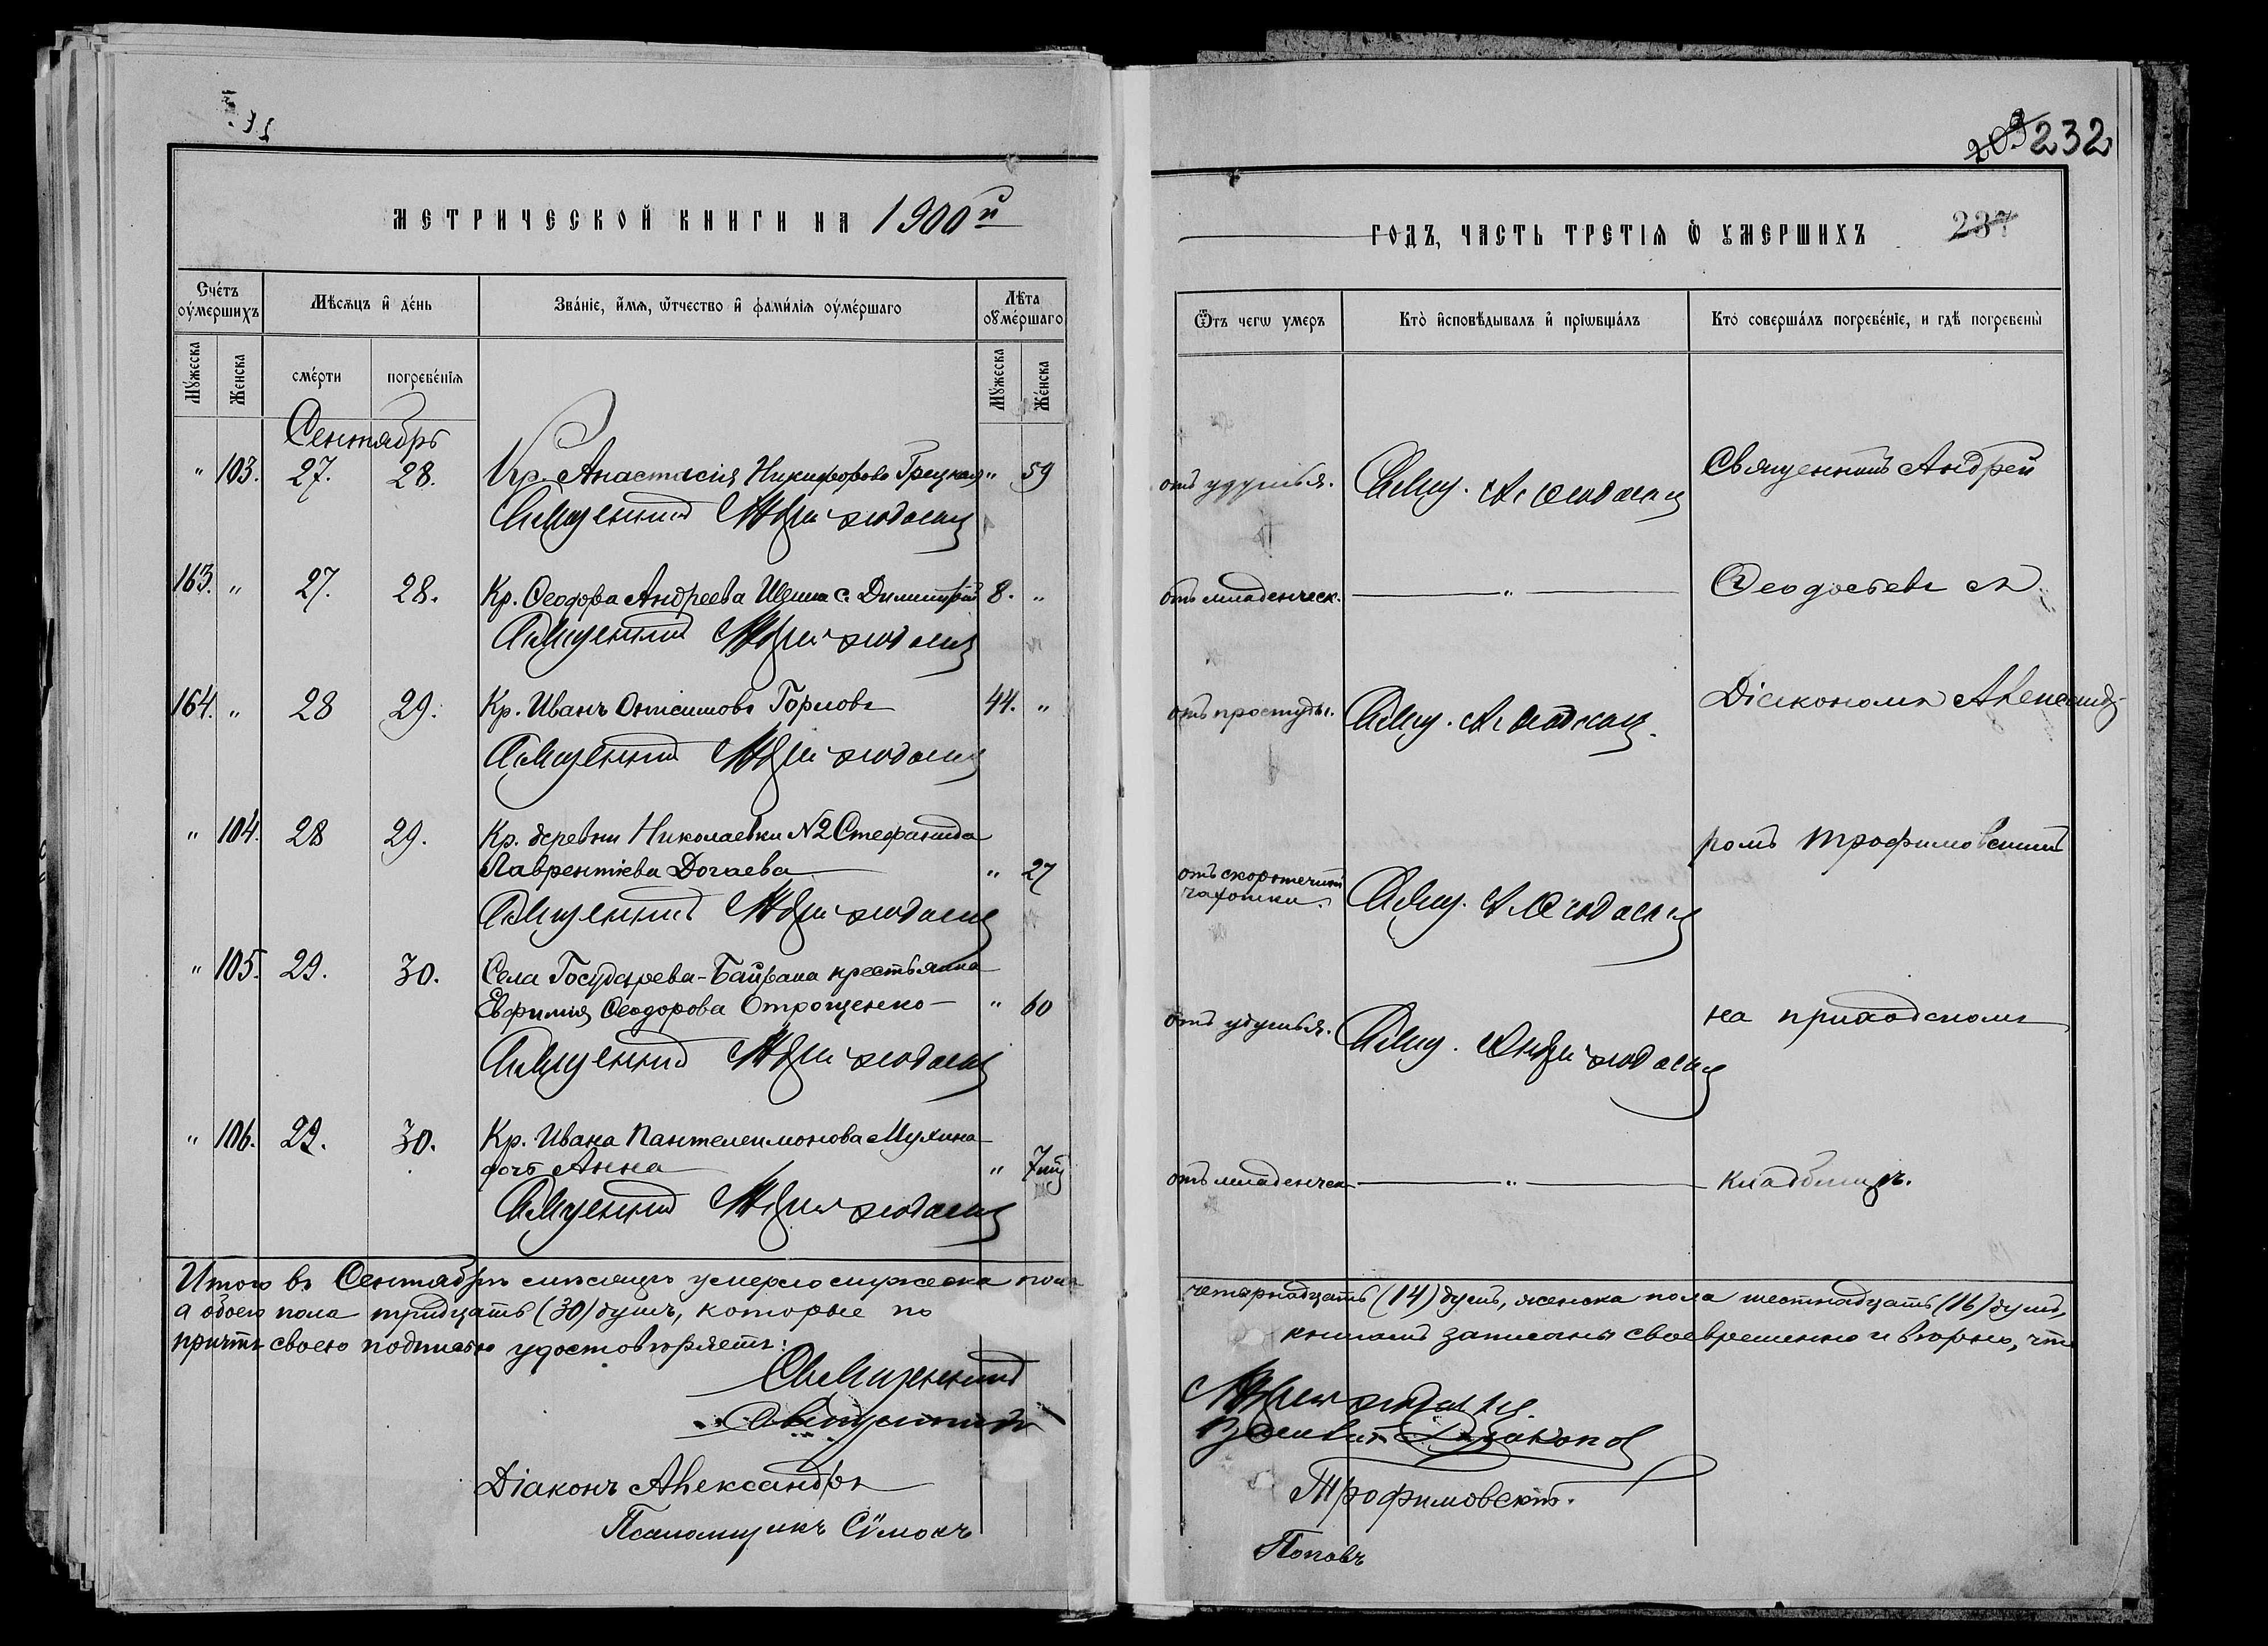 203 232
МЕТРИЧЕСКОЙ КНИГИ НА 1900й
ГОДЪ, ЧАСТЬ ТРЕТІѦ Ѿ УМЕРШИХЪ 237
Счетъ оумершихъ
Мѣсѧцъ и день
Званіе, имѧ, ѿтчество и фамиліѧ оумершаго
Лѣта оумершаго
Мужеска
Женска
смерти
погребеніѧ
Мужеска
Женска
Ѿтъ чегѡ умеръ
Кто исповѣдывалъ и пріѡбщалъ
Кто совершалъ погребеніе, и гдѣ погребены
Сентябрь
" 103. 27. 28. Кр. Анастасія Никифорова Грецкая " 59
Священникъ Андрей Ѳеодосьевъ
отъ удушья. Свящ. А. Ѳеодосьевъ Священникъ Андрей
163. " 27. 28. Кр. Ѳеодора Андреева с. Димитрій 8. "
Священникъ Андрей Ѳеодосьевъ
отъ младенческ. " Ѳеодосьевъ съ
164. " 28 29. Кр. Иванъ Онисимовъ Горловъ 44. "
Священникъ Андрей Ѳеодосьевъ
отъ простуды. Свящ. А. Ѳеодосьевъ. Діакономъ Александ-
" 104. 28 29. Кр. деревни Николаевки N2 Стефанида
Лаврентіева Догаева " 27
Священникъ Андрей Ѳеодосьевъ
отъ скоротечной
чахотки. Свящ. А. Ѳеодосьевъ
ромъ Трофимовскимъ
" 105. 29. 30. Села Государева-Байрака крестьянка
Евфимія Ѳеодорова Отрощенко " 60
Священникъ Андрей Ѳеодосьевъ
отъ удушья. Свящ. Андрей Ѳеодосьевъ на приходскомъ
" 106. 29. 30. Кр. Ивана Пантелеимонова Мухина
дочь Анна " 7 мц
Священникъ Андрей Ѳеодосьевъ
отъ младенческ " кладбищѣ.
Итого въ Сентябрѣ мѣсяцѣ умерло мужеска пола
четырнадцать (14) душъ, женска пола шестнадцать (16) душъ,
а обоего пола тридцать (30) душъ, которые по
книгамъ записаны своевременно и вѣрно, что
причтъ своею подписью удостовѣряетъ:
Священникъ
Андрей Ѳеодосьевъ.
Священникъ
Діаконъ Александръ
Трофимовскій.
Псаломщикъ Сѵмонъ
Поповъ